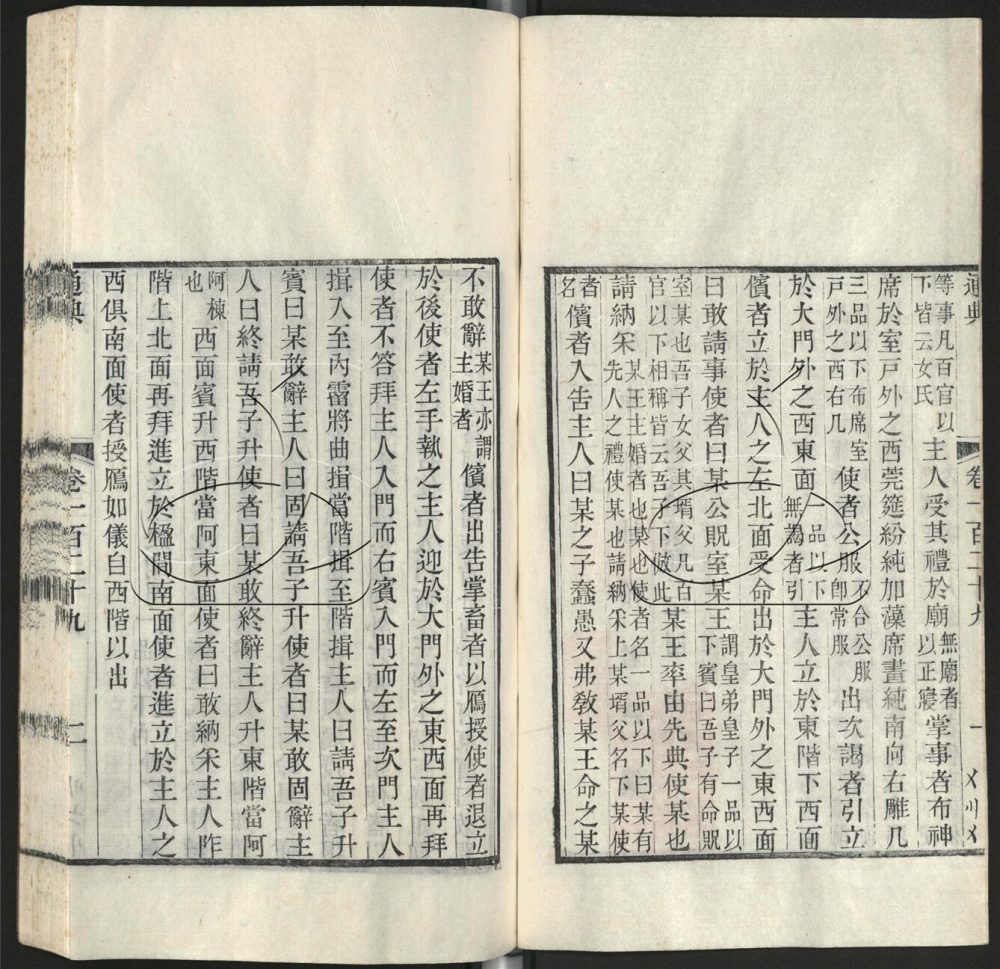 通典
卷一百二十九
一
等事凡百官以下皆云女氏主人受其禮於廟無廟者以正寢掌事者布神
席於室戸外之西莞筵紛純加藻席畫純南向右雕几
三品以下布席室戸外之西右几使者公服不合公服卽常服出次謁者引立
於大門外之西東面一品以下無謁者引主人立於東階下西面
儐者立於主人之左北面受命出於大門外之東西面
曰敢請事使者曰某公貺室某王謂皇弟皇子一品以下賓曰吾子有命貺
室某也吾子女父其壻父凡百官以下相稱皆云吾子下倣此某王率由先典使某也
請納采某王主婚者也某也使者名一品以下曰某有先人之禮使某也請納采上某壻父名下某使
者名儐者入吿主人曰某之子蠢愚又弗敎某王命之某
不敢辭某王亦謂主婚者儐者出吿掌畜者以鴈授使者退立
於後使者左手執之主人迎於大門外之東西面再拜
使者不答拜主人入門而右賓入門而左至次門主人
揖入至內霤將曲揖當階揖至階揖主人曰請吾子升
賓曰某敢辭主人曰固請吾子升使者曰某敢固辭主
人曰終請吾子升使者曰某敢終辭主人升東階當阿
阿棟也西面賓升西階當阿東面使者曰敢納采主人阼
階上北面再拜進立於楹間南面使者進立於主人之
西俱南面使者授鴈如儀自西階以出
通典
卷一百二十九
二